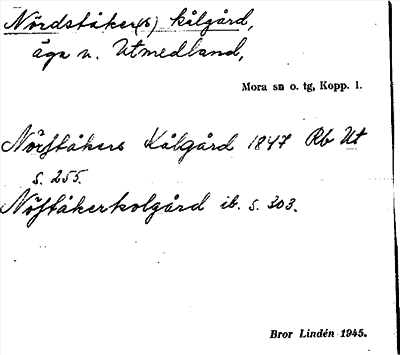 Nördståker(s) kålgård,
äga v. Utmedland,
Mora sn o. tg, Kopp. l.
Nörståkers Kålgård 1847 Rb Ut
s. 255.
Nöståkerkolgård ib. s. 303.
Bror Lindén 1945.